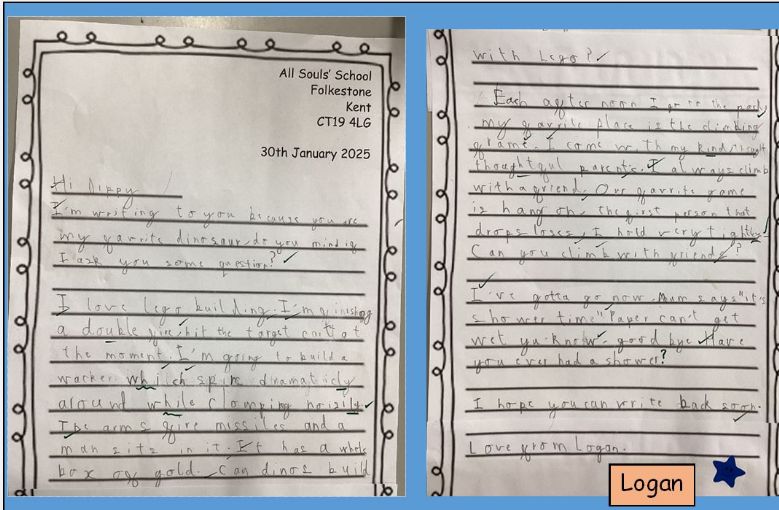 All Souls' School
Folkestone
Kent
CT19 4LG
30th January 2025
Hi Dippy
I'm writing to you because you are
my favrite dinosaur, do you mind if
I ask you some question?
I love lego building. I'm finishing
a double fire, hit the target cart at
the moment. I'm going to build a
whitch spins dramaticly
around while clomping noisily.
The arms fire missiles and a
man sits in it. It has a whole
box of gold. Can dinos build
with Lego?
Each after noon I go to the park,
my favrite place is the climbing
frame. I come with my kind,
thoughtful parents. I always climb
with a friend. Our favrite game
is hang on, the first person that
drops loses, I hold very tightly.
Can you climb with friends?
I've gotta go now. Mum says "it's
shower time" Paper can't get
wet you know. good bye. Have
you ever had a shower?
I hope you can write back soon.
Love from Logan.
Logan